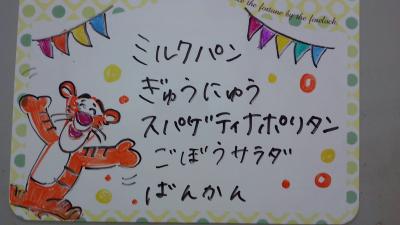 the fortune by the forelock.
ミルクパン
ぎゅうにゅう
スパゲティナポリタン
ごぼうサラダ
ばんかん